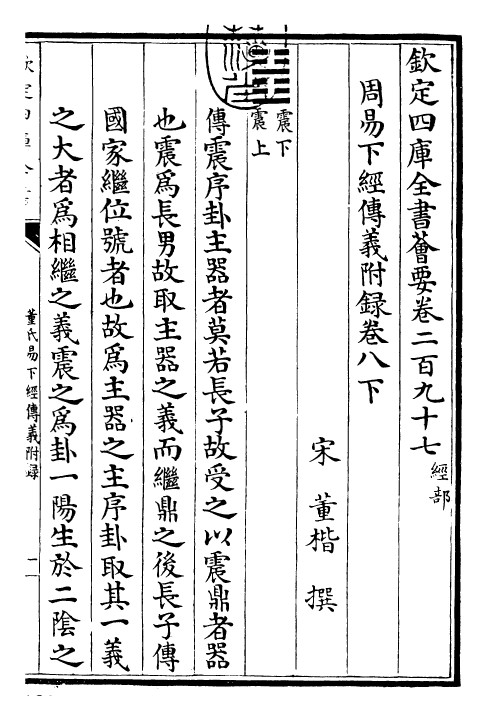 欽定四庫全書薈要卷二百九十七 經部
周易下經傳義附録卷八下
宋 董楷 撰
震下
震上
傳震序卦主器者莫若長子故受之以震鼎者器
也震爲長男故取主器之義而繼鼎之後長子傳
國家繼位號者也故爲主器之主序卦取其一義
之大者爲相繼之義震之爲卦一陽生於二陰之
董氏易下經傳義附録